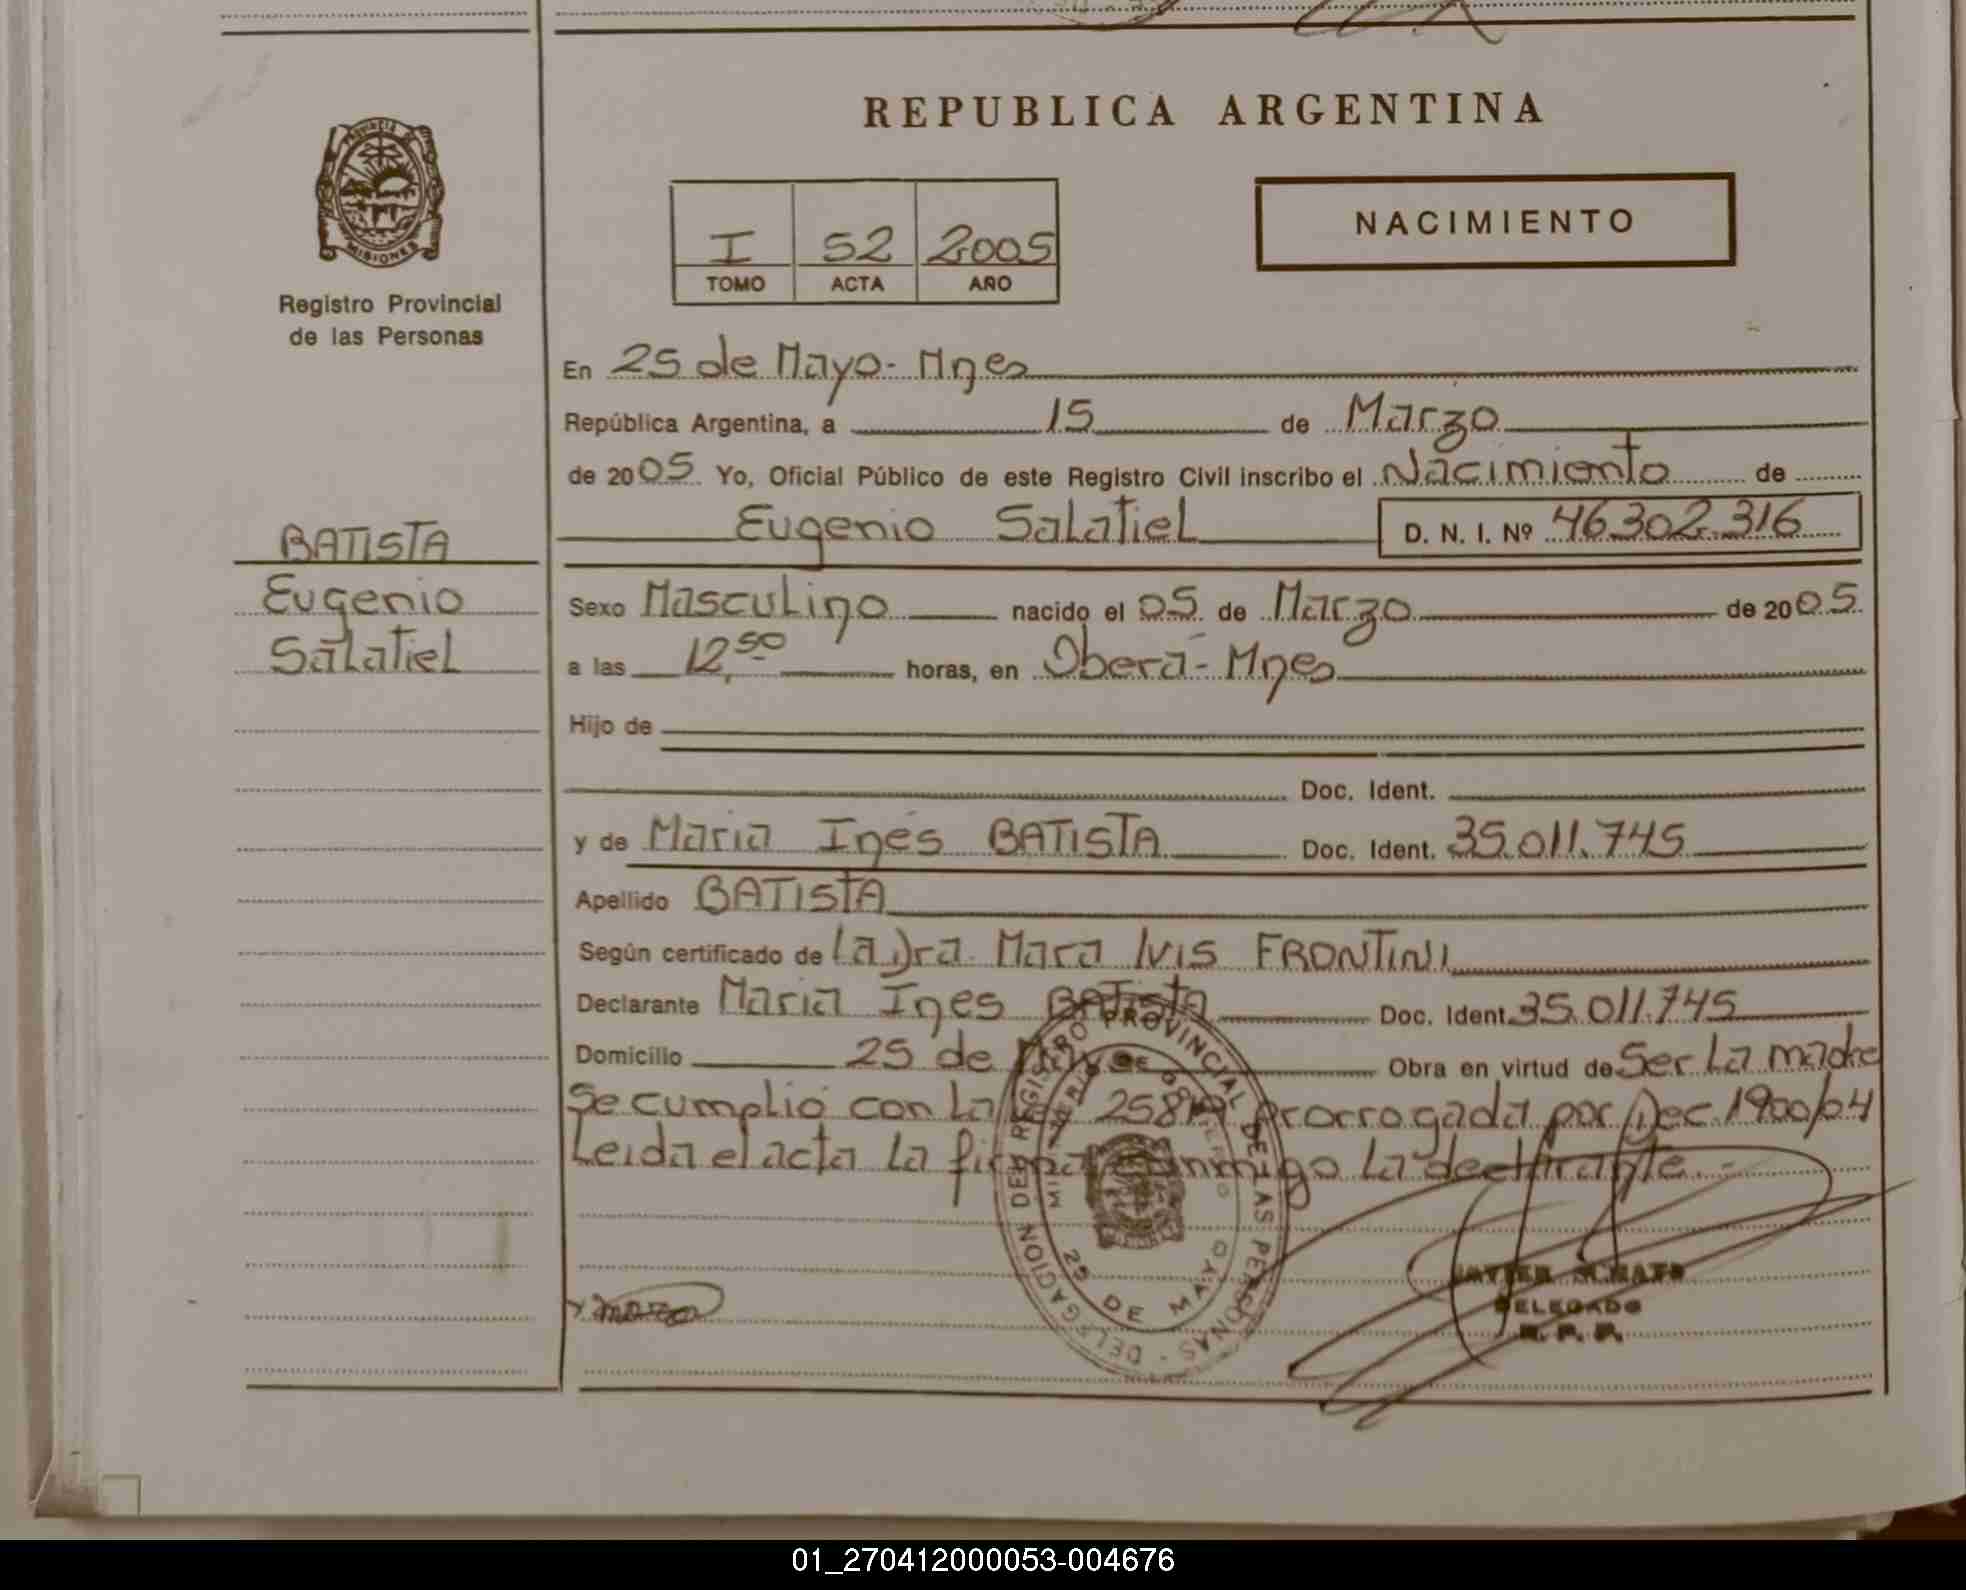 REPUBLICA ARGENTINA
PROVINCIA DE
MISIONES
Registro Provincial
de las Personas
I 52 2005
TOMO ACTA AÑO
NACIMIENTO
En 25 de Mayo - Mnes
República Argentina, a 15 de Marzo
de 2005 Yo, Oficial Público de este Registro Civil inscribo el Nacimiento de
Eugenio Salatiel D. N. I. Nº 46302.316
BATISTA
Eugenio
Salatiel
Sexo Masculino nacido el 05 de Marzo de 2005
a las 12,50 horas, en Oberá - Mnes
Hijo de
Doc. Ident.
y de Maria Inés BATISTA Doc. Ident. 35.011.745
Apellido BATISTA
Según certificado de La Dra. Mara Ivis FRONTINI
Declarante Maria Ines BATISTA Doc. Ident. 35.011.745
Domicilio 25 de Mayo Obra en virtud de Ser La madre
Se cumplió con La 25819 prorrogada por Dec. 1900/04
Leida el acta La firma conmigo La declarante.-
DELEGACION DEL REGISTRO PROVINCIAL DE LAS PERSONAS
MINISTERIO DE GOBIERNO
25 DE MAYO
JAVIER
DELEGADO
R. P. P.
01_270412000053-004676